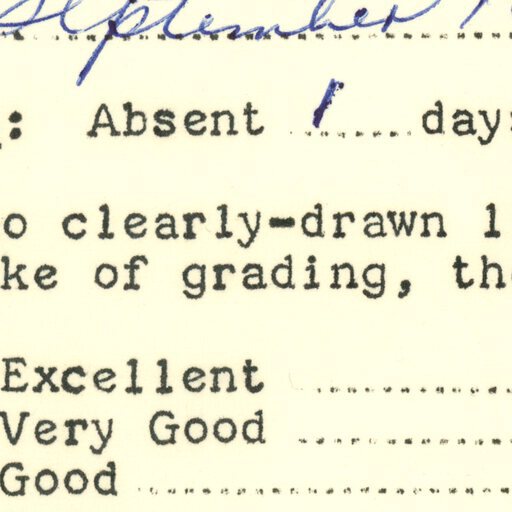 September 1
: Absent 1 days
o clearly-drawn l
ke of grading, the
Excellent
Very Good
Good